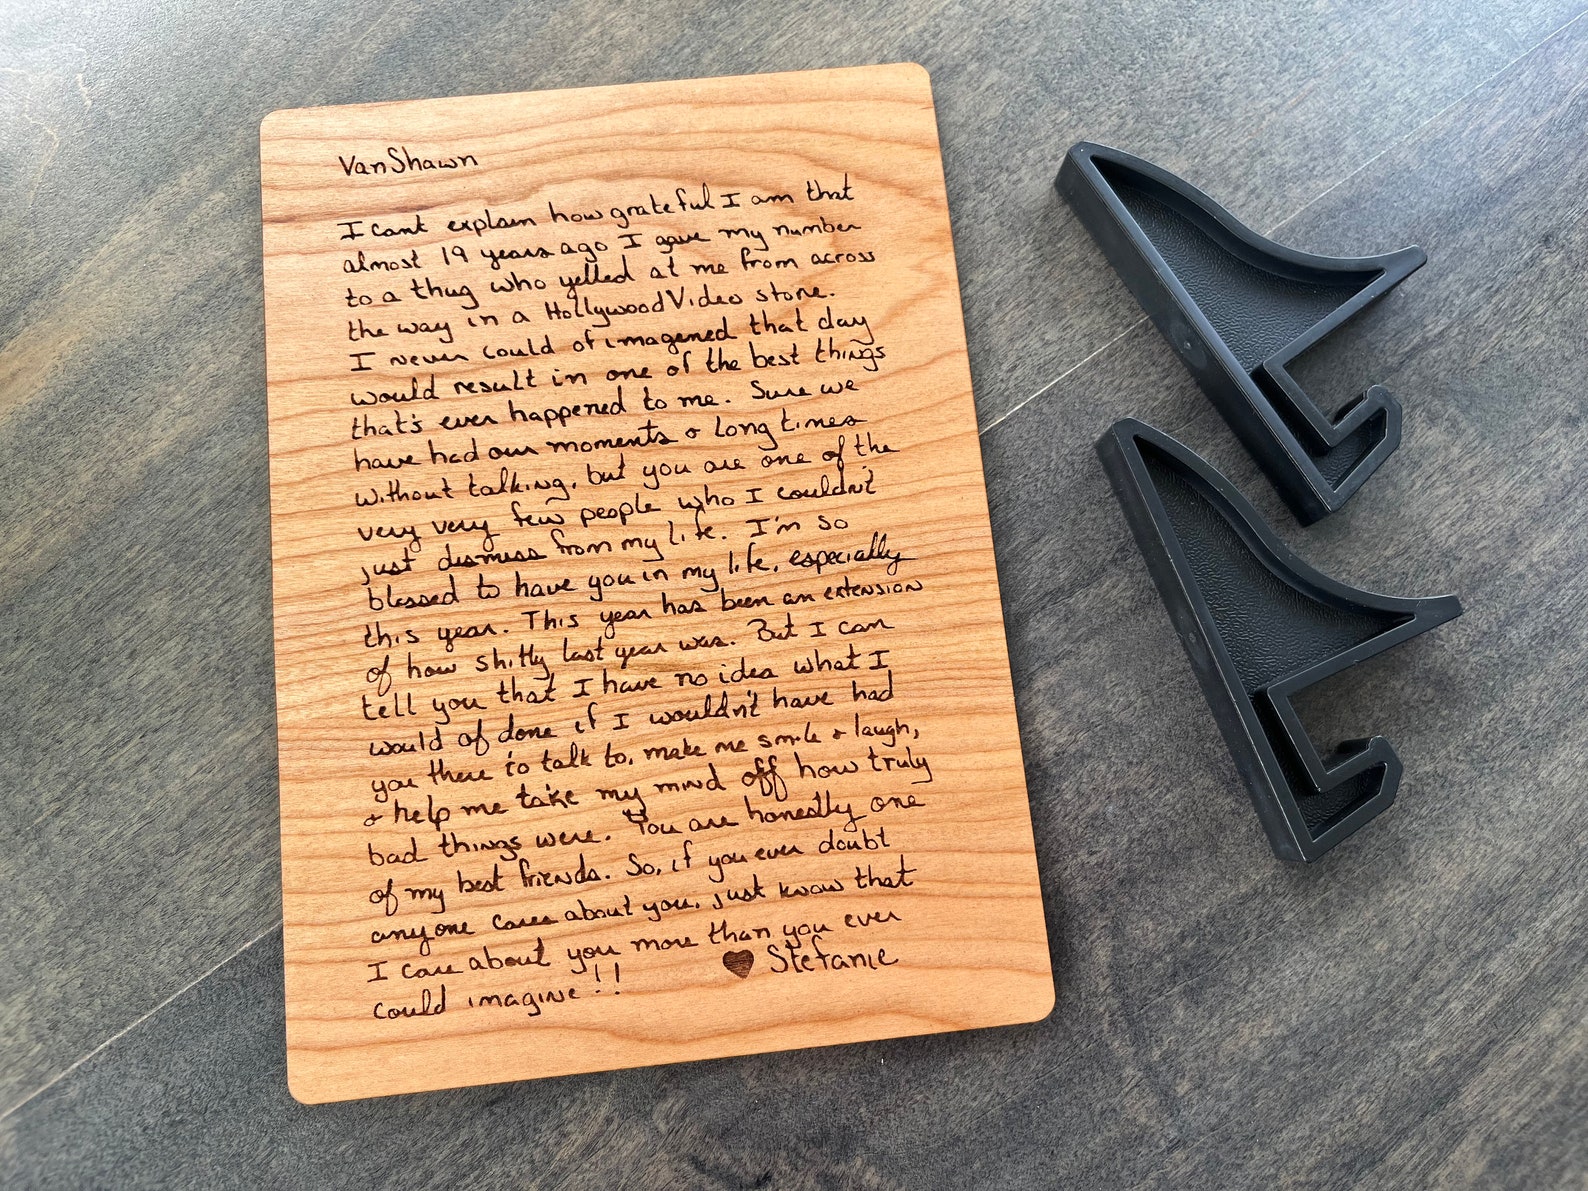 VanShawn
I cant explain how grateful I am that
almost 19 years ago I gave my number
to a thug who yelled at me from across
the way in a Hollywood Video store.
I never could of imagened that day
would result in one of the best things
that's ever happened to me. Sure we
have had our moments & long times
without talking, but you are one of the
very very few people who I couldn't
just dismiss from my life. I'm so
blessed to have you in my life, especially
this year. This year has been an extension
of how shitty last year was. But I can
tell you that I have no idea what I
would of done if I wouldn't have had
you there to talk to, make me smile & laugh,
& help me take my mind off how truly
bad things were. You are honestly one
of my best friends. So, if you ever doubt
anyone cares about you, just know that
I care about you more than you ever
could imagine!!
♥ Stefanie